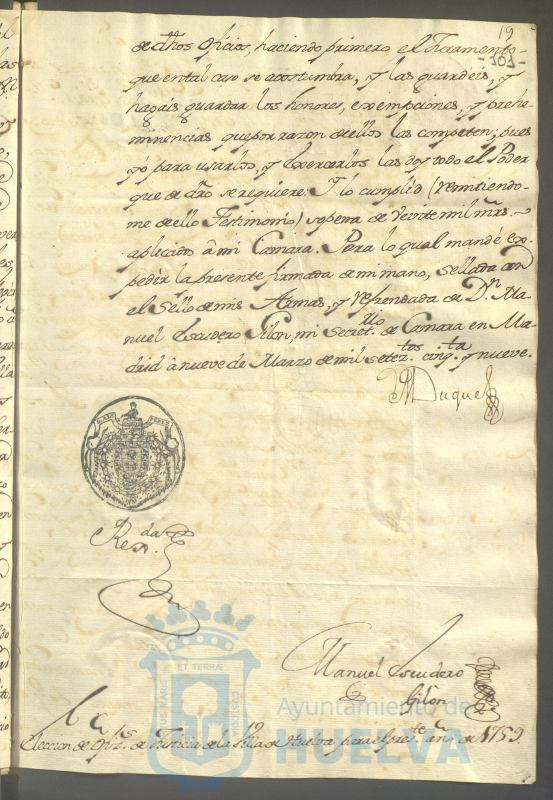 19
-101-
de dhos oficios, haciendo primero el Juramento
que en tal caso se acostumbra, y las guardeis, y
hagais guardar los honores, exempciones, y prehe-
minencias que por razon de ellos las competen; pues
yo para usarlos, y exercerlos las doy todo el Poder
que de dro se requiere. Y lo cumplid (remitiendo-
me de ello Testimonio) sopena de veinte mil mrs.
aplicados â mi Camara. Para lo qual mandé ex-
pedir la presente firmada de mi mano, sellada con
el Sello de mis Armas, y refrendada de Dn. Ma-
nuel Escudero Gilon, mi Secretrio. de Camara en Ma-
drid à nueve de Marzo de mil seteztos. cinqta. y nueve.
El Duque
Reda.
Manuel Escudero
Gilon
Eleccion de de Justicia de la Villa de Huelva para el preste. año de 1759.
ET TERRAE
CUSTODIA
PORTUS MARIS
Ayuntamiento de
HUELVA